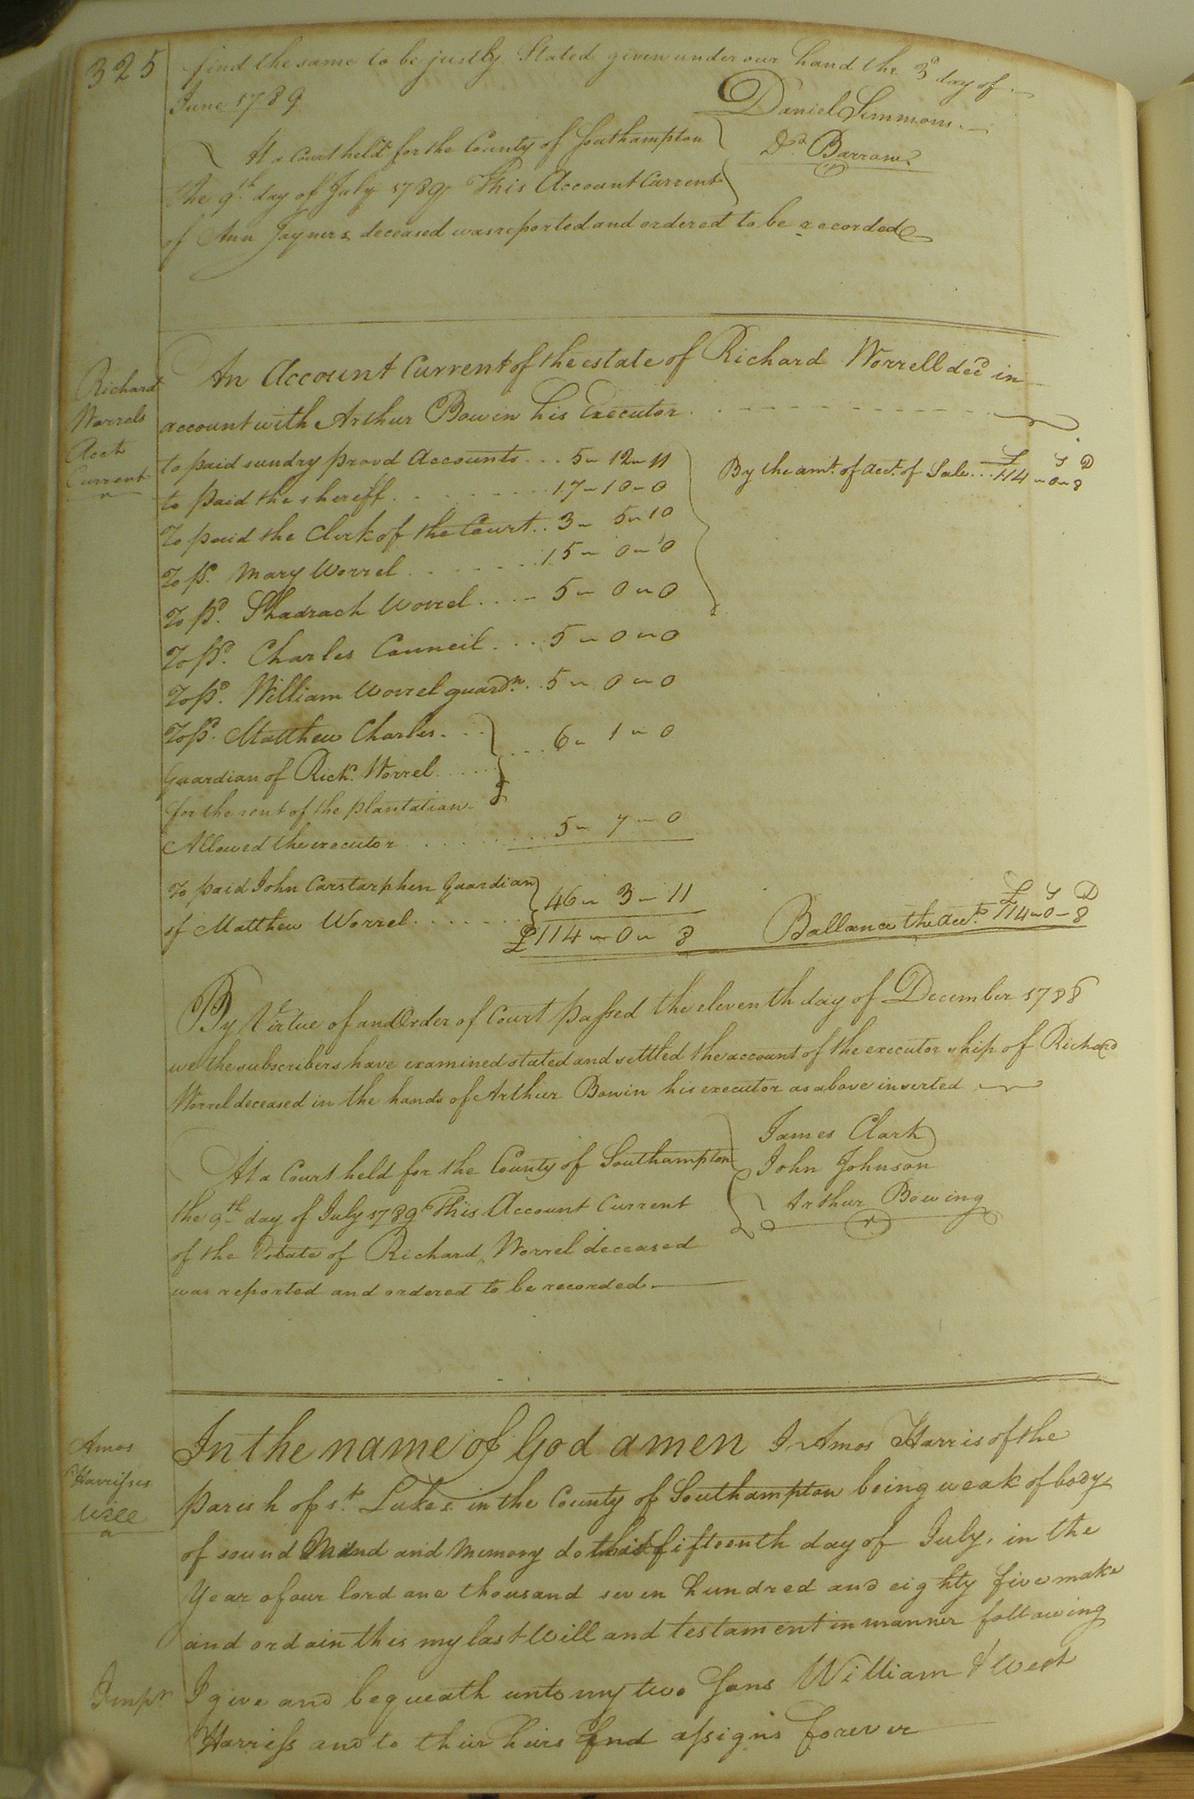 325
find the same to be justly Stated given under our hand the 3d day of
June 1789
Daniel Simmons
Dd. Barrow
At a Court held for the County of Southampton
the 9th. day of July 1789 This Account Current
of Ann Jayners deceased was reported and ordered to be recorded
Richard
Worrels
Acct
Current
An Account Current of the estate of Richard Worrell decd in
account with Arthur Bowen his Executor
to paid sundry provd Accounts ... 5 – 12 – 11
to paid the sheriff . . . 17 – 10 – 0
To paid the Clerk of the Court .. 3 – 5 – 10
To pd. Mary Worrel . . . . 15 – 0 – 0
To pd. Shadrach Worrel . . . 5 – 0 – 0
To pd. Charles Council . . . 5 – 0 – 0
To pd. William Worrel guardn. . . 5 – 0 – 0
To pd. Matthew Charles . . .
Guardian of Richd. Worrel . . . . 6 – 1 – 0
for the rent of the plantation
Allowed the executor . . . . . . 5 – 7 – 0
To paid John Carstarphen Guardian
of Matthew Worrel . . . . . . 46 – 3 – 11
£114 – 0 – 8
£ S D
By the amt. of acct. of Sale ... 114 – 0 – 8
£ S D
Ballance the acct. 114 – 0 – 8
By Virtue of and Order of Court passed the eleventh day of December 1788
we the subscribers have examined stated and settled the account of the executor ship of Richard
Worrel deceased in the hands of Arthur Bowin his executor as above inserted
James Clark
John Johnson
Arthur Bowing
At a Court held for the County of Southampton
the 9th day of July 1789 This Account Current
of the Estate of Richard Worrel deceased
was reported and ordered to be recorded
Amos
Harrisses
Will
In the name of God amen I Amos Harris of the
parish of St. Lukes in the County of Southampton being weak of body
of sound Mind and Memory do this fifteenth day of July, in the
Year of our lord one thousand seven hundred and eighty five make
and ordain this my last Will and testament in manner following
Impr
I give and bequeath unto my two Sons William & West
Harriss and to their heirs and assigns forever